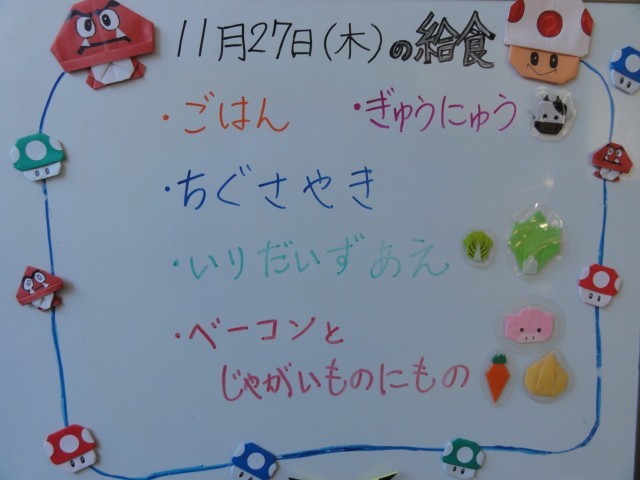 11月27日(木)の給食
・ごはん ・ぎゅうにゅう
・ちぐさやき
・いりだいずあえ
・ベーコンと
じゃがいものにもの